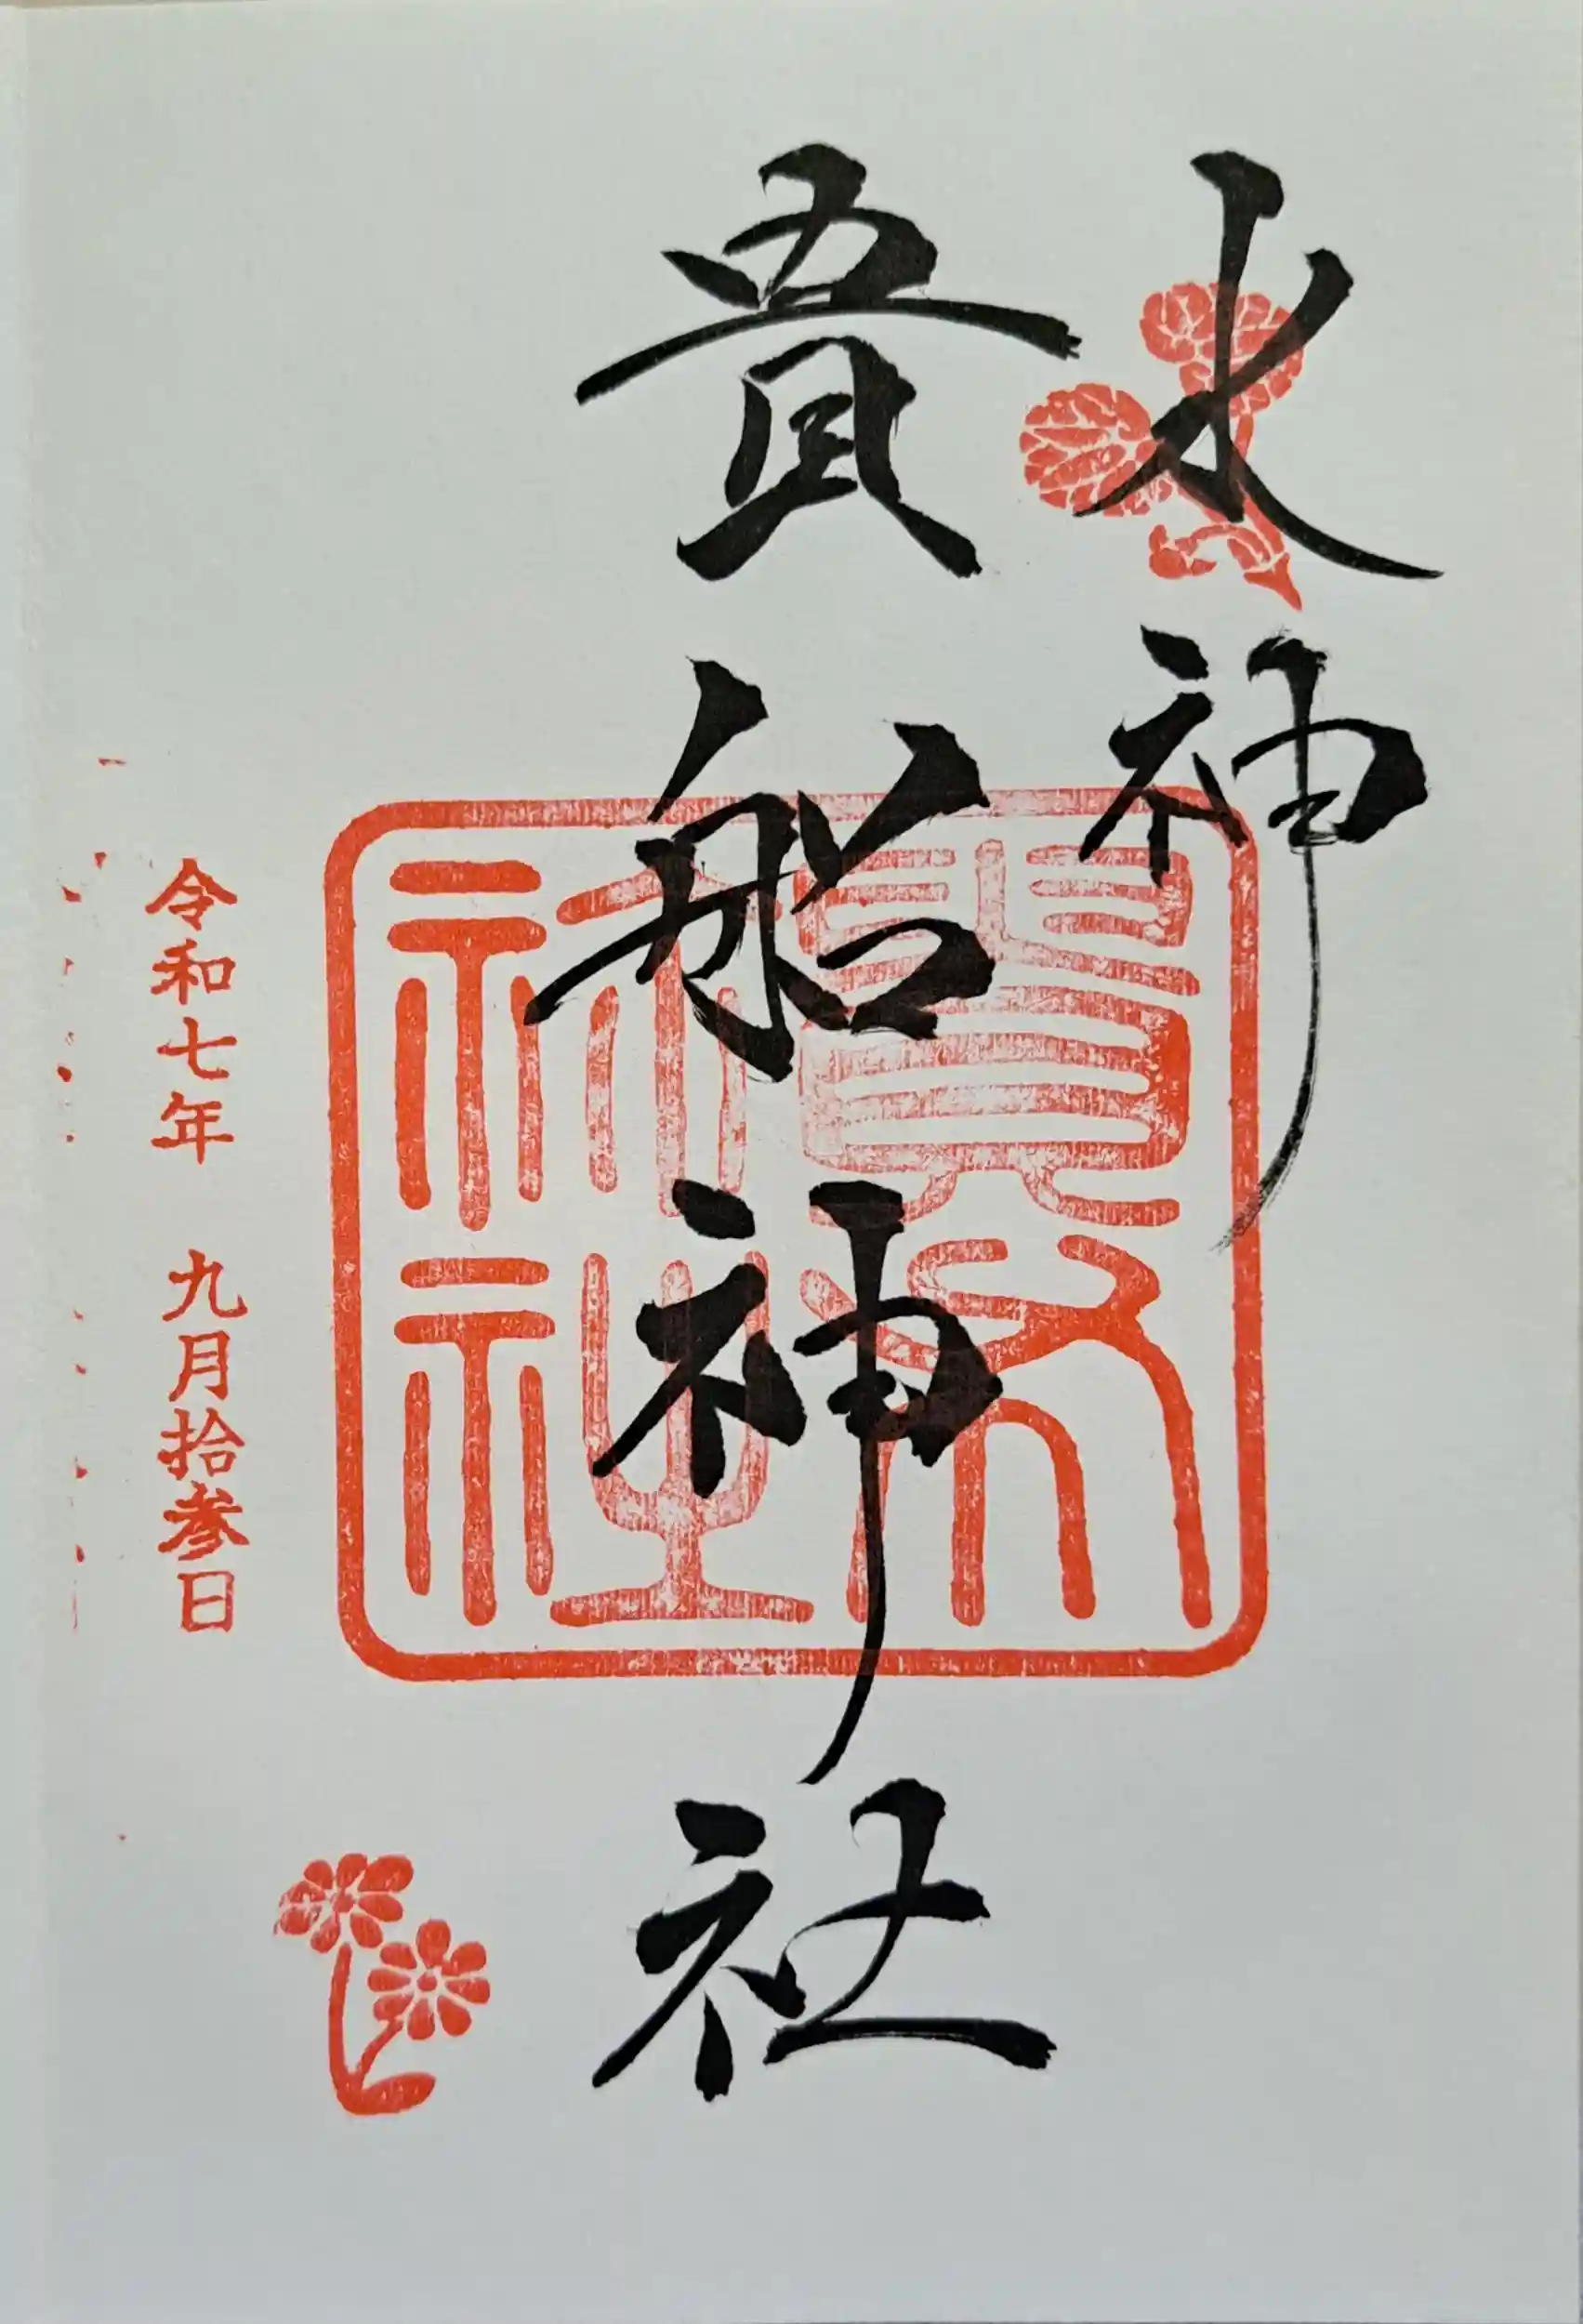 水神
貴船神社
貴布
祢社
令和七年 九月拾参日